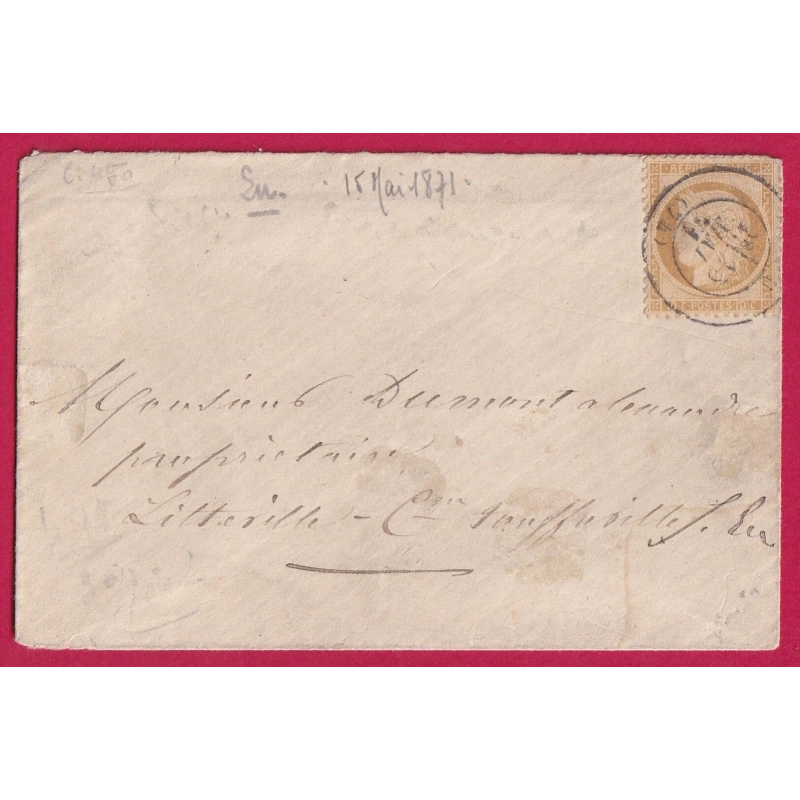 Eu. · 15 Mai 1871 ·
REPUB
10 C POSTES 10 C
MAI
Monsieur Dumont alexandre
proprietaire
Litteville - Cne touffreville s. Eu